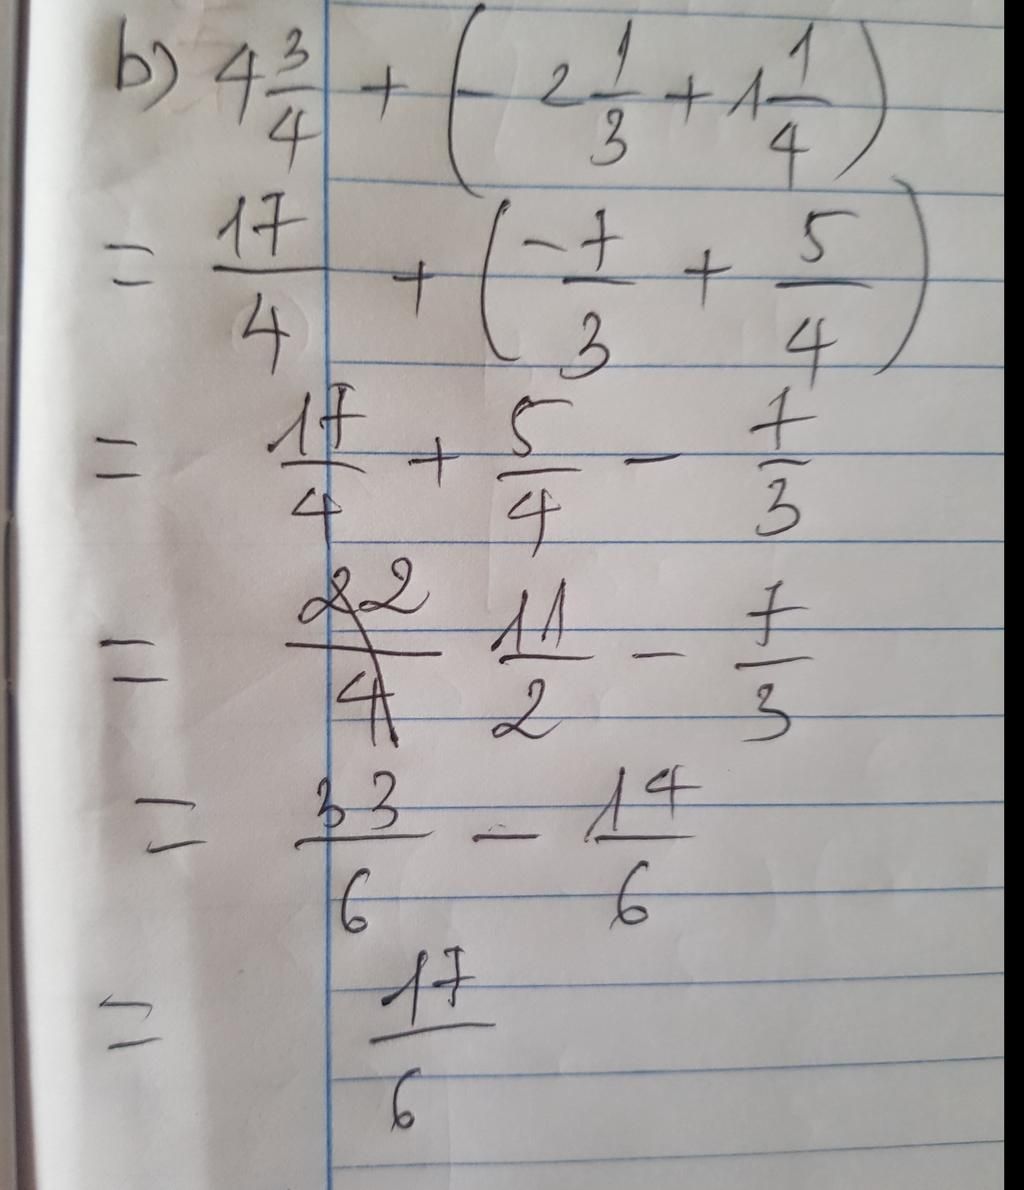 b) 4 3/4 + (- 2 1/3 + 1 1/4)
= 17/4 + (-7/3 + 5/4)
= 17/4 + 5/4 - 7/3
= 22/4 11/2 - 7/3
= 33/6 - 14/6
= 17/6